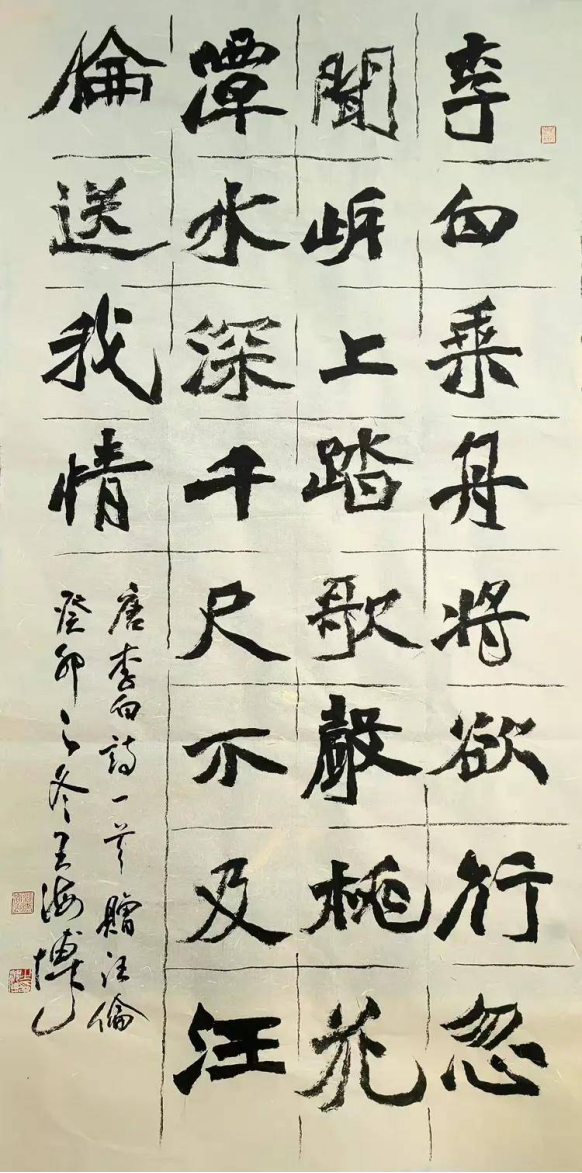 李白乗舟将欲行忽
聞岍上踏歌聲桃花
潭水深千尺不及汪
倫送我情
唐李白詩一首贈汪倫
癸卯之冬王海博